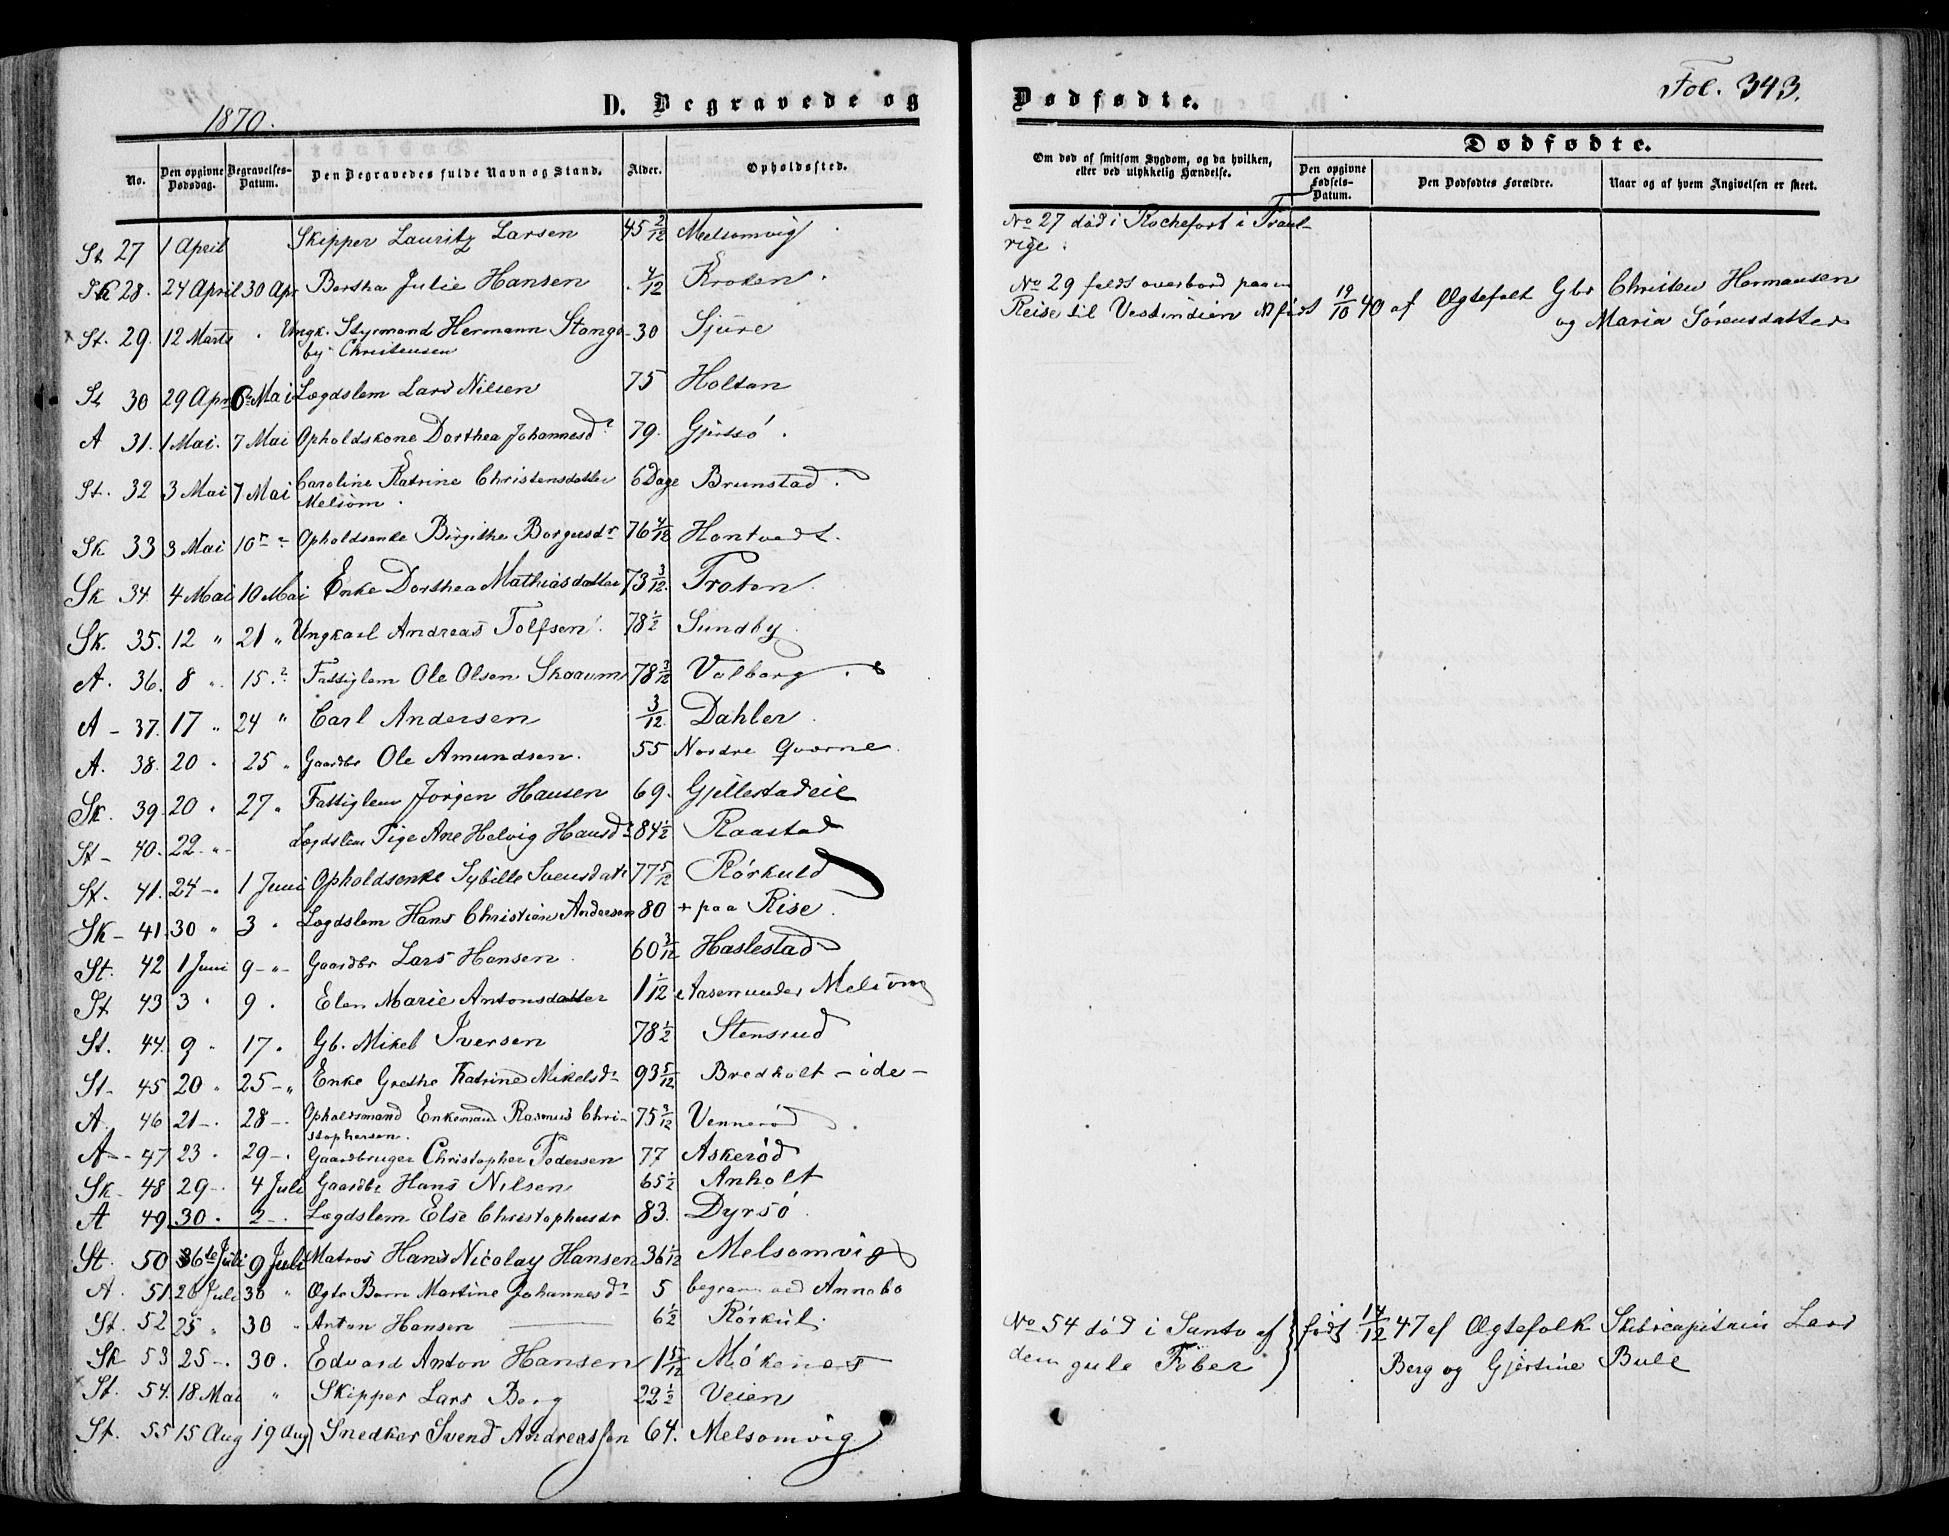 1870.
D. Begravede og
No.
Den opgivne Dødsdag.
Begravelses-Datum.
Den Begravedes fulde Navn og Stand.
Alder.
Opholdssted.
St 27 1 April Skipper Lauritz Larsen 45 2/12 Melsomvig
Sk 28. 24 April 30 Apr Bertha Julie Hansen 4/12 Kroken.
St. 29. 12 Marts Ungk. Styrmand Hermann Stange- 30 Sjüre
by Christensen
St 30 29 Apr 6 Mai Lægdslem Lars Nilsen 75 Holtan
A 31. 1 Mai. 7 Mai Opholdskone Dorthea Johannesdr 79. Gjersø.
St. 32 3 Mai 7 Mai Caroline Katrine Christensdatter 6 Dage Brunstad.
Melsom.
Sk 33 3 Mai 10 Opholdsenke Birgithe Borgersdr 76 4/12 Hontvedt.
Sk 34 4 Mai 10 Mai Enke Dorthea Mathiasdatter 73 3/12 Froten
Sk. 35. 12 " 21 " Ungkarl Andreas Tolfsen. 78 1/2 Sundby.
A. 36. 8 " 15. Fattiglem Ole Olsen Skaaum 78 3/12 Valberg.
A - 37. 17 " 24 " Carl Andersen 3/12 Dahler.
A. 38. 20 " 25 " Gaardbr Ole Amundsen. 55 Nordre Qværne.
Sk. 39. 20 " 27 " Fattiglem Jørgen Hansen 69. Gjellestadeie
St - 40. 22 - " - Lægdslem Pige Ane Helvig Hansd 84 1/2 Raastad
St. 41. 24 -. 1 Juni Opholdsenke Sybille Svensdatr 77 5/12 Rørkuld
Sk - 41. 30 " 3 " Lægdslem Hans Christian Andersen 80 + paa Rise.
St. 42 1 Juni 9 - " - Gaardbr Lars Hansen. 60 3/12 Haslestad
St 43 3 " 9. Elen Marie Antonsdatter 1 1/12 Aasen under Melsom
St. 44. 9 " 17. Gb. Mikel Iversen 78 1/2 Stensrud
St. 45 20 " 25 - " Enke Grethe Katrine Mikelsdr 93 5/12 Bredholt - öde -
A. 46 21 -. 28 -. Opholdsmand Enkemand Rasmus Chri- 75 2/12 Vennerød.
stophersen.
A - 47 23 . 29 -. Gaardbruger Christopher Pedersen 77 Askerød
Sk - 48 29 -. 4 Juli Gaardbr Hans Nilsen 65 1/2 Anholt
A 49 30 . 2 -. Lægdslem Else Christophersdr 83. Dyrsö.
St. 50 6te Juli 9 Juli Matros Hans Nicolay Hansen 36 1/12 Melsomvig
A. 51. 26 Juli 30 " Ægte Barn Martine Johannesdr 5 begravn ved Annebo
St. 52 25 " 30 " Anton Hansen 6 1/2 Rörkül.
Sk 53 25 -. 30. Edvard Anton Hansen 1 5/12 Møkenes
St. 54. 18 Mai " Skipper Lars Berg 22 1/2 Veien
St. 55 15 Aug 19 Aug Snedker Svend Andreassen 64. Melsomvig
Dødfødte.
Fol. 343.
Om død af smitsom Sygdom, og da hvilken, eller ved ulykkelig Hændelse.
Dødfødte.
Den opgivne Fødsels-Datum.
Den Dødfødtes Forældre.
Naar og af hvem Angivelsen er skeet.
No 27 död i Rochefort i Frank-
rige.
No 29 faldt overbord paa en
Reise til Vestindien født 19/10 40 af Ægtefolk Gbr Christen Hermansen
og Maria Sørensdatter
No 54 död i Santo af født 14/12 47 af Ægtefolk Skibscapitain Lars
den gule Feber Berg og Gjertine Bull